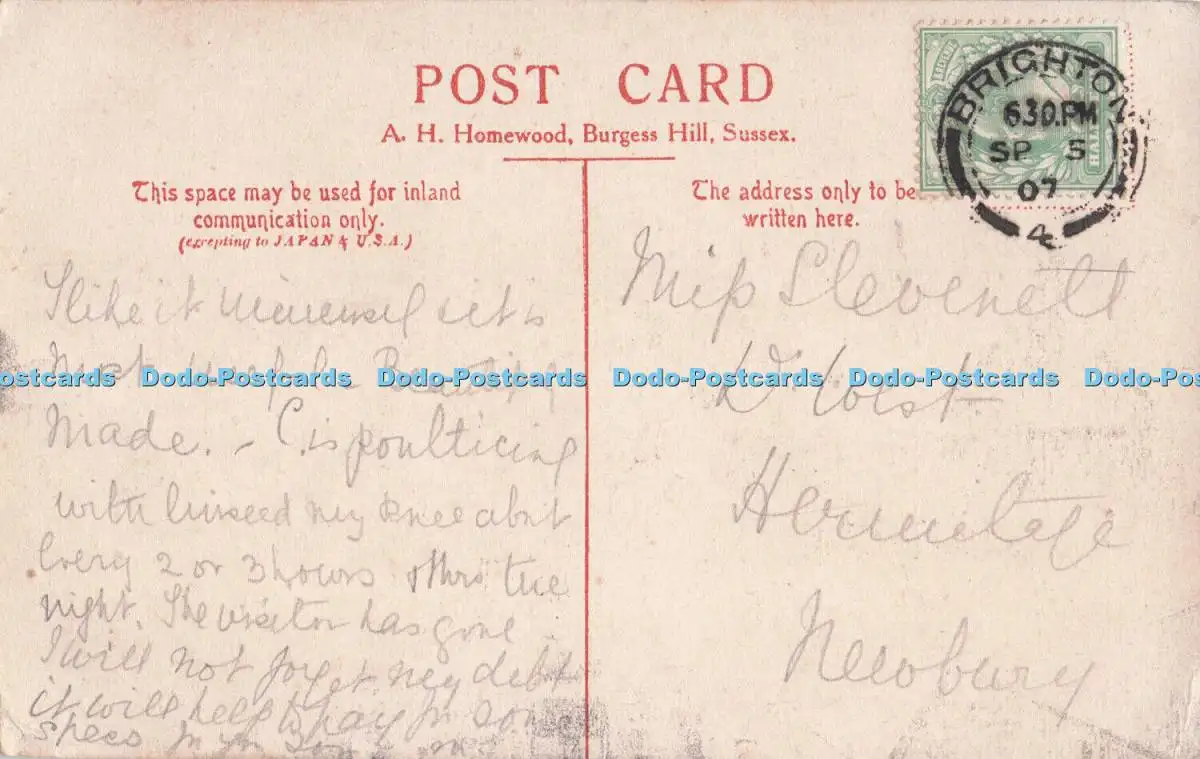 POST CARD
A. H. Homewood, Burgess Hill, Sussex.
This space may be used for inland
communication only.
(excepting to JAPAN & U.S.A.)
The address only to be
written here.
BRIGHTON
6.30.PM
SP 5
07
4
HALF
I like it it is
most
Made. – C. is poulticing
with linseed my knee abut
Every 2 or 3 hours thro' the
night. The visitor has gone
I will not forget my debt
it will help to pay for some
specs
Miss
West
Hermitage
Newbury
Dodo-Postcards Dodo-Postcards Dodo-Postcards Dodo-Postcards Dodo-Postcards Dodo-Postcards